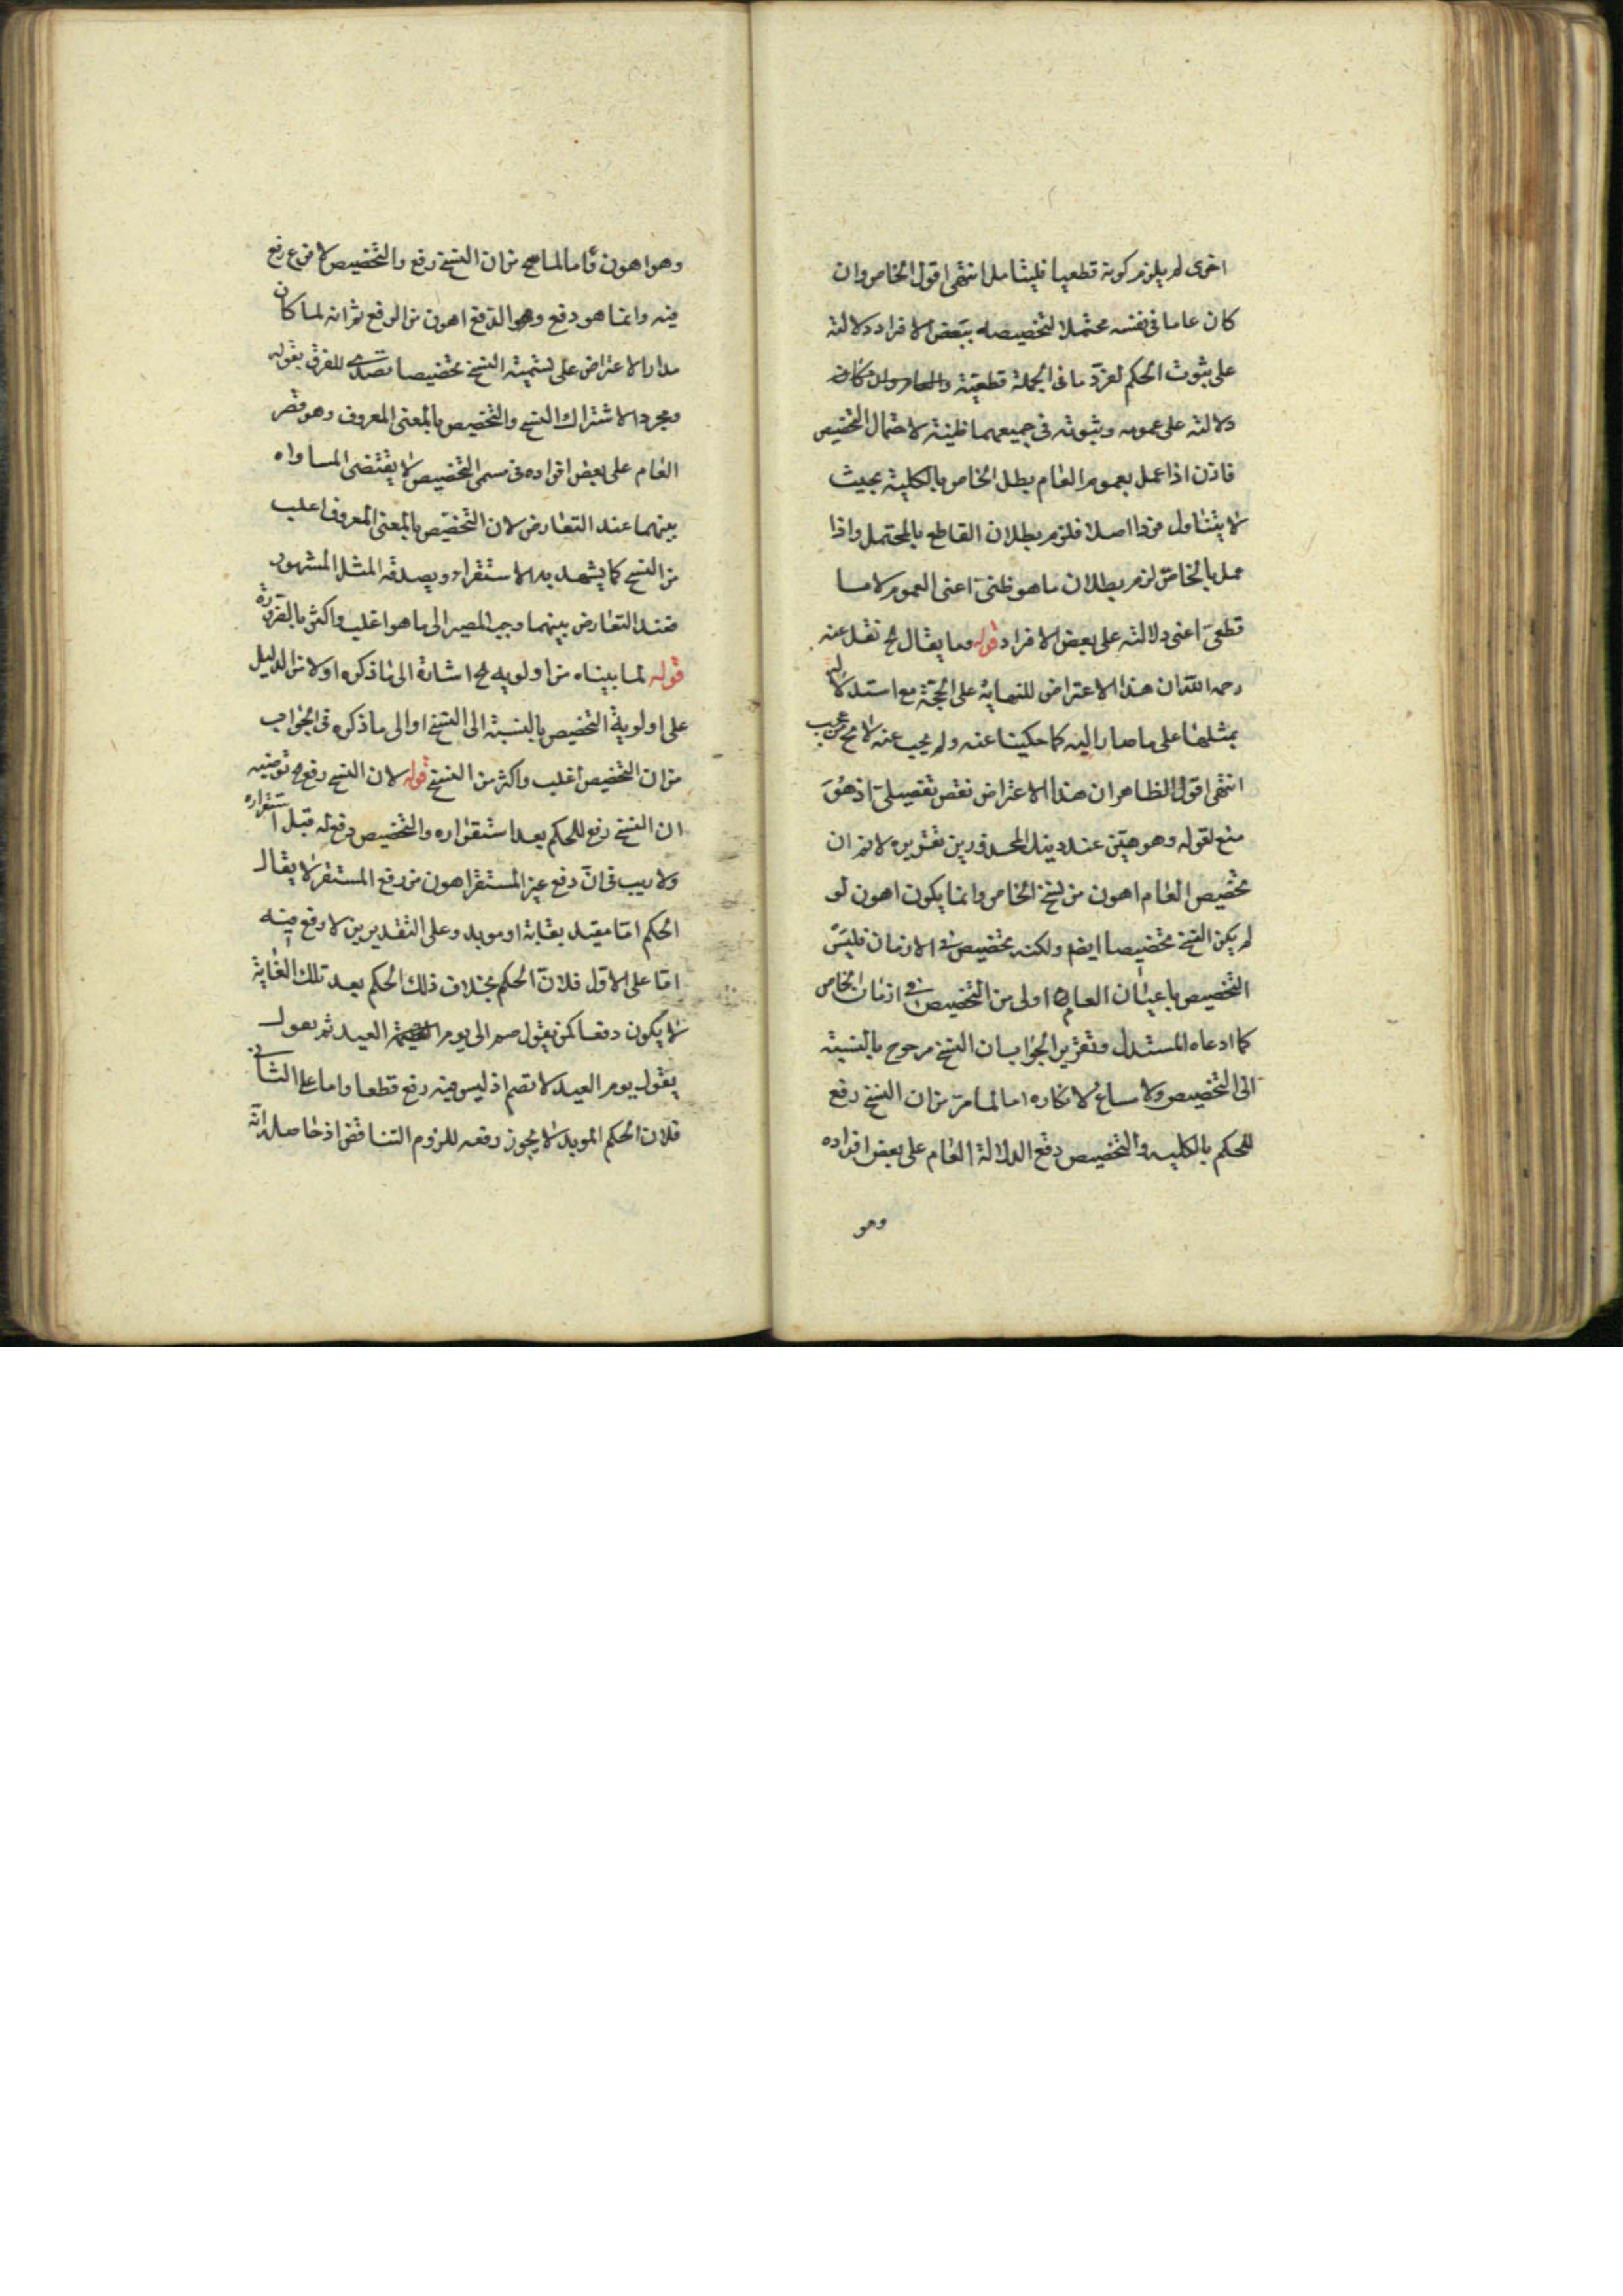 اخرى لم يلزم كونه قطعيا فليتامل انتهى اقول الخاص وان
كان عاما فى نفسه محتملا لتخصيصه ببعض الافراد دلالته
على ثبوت الحكم لفرد ما فى الجملة قطعية والعام وان كان
دلالته على عمومه وثبوته فى جميعهما ظنية لاحتمال التخصيص
فاذن اذا عمل بعموم العام بطل الخاص بالكلية بحيث
لا يتناول فردا اصلا فلزم بطلان القاطع بالمحتمل واذا
عمل بالخاص لزم بطلان ما هو ظنى اعنى العموم لا ما
قطعى اعنى دلالته على بعض الافراد قوله وما يقال لح نقل عنه
رحمه الله ان هذا الاعتراض للنهاية على الحجة مع استدلاله
بمثلها على ما صار اليه كما حكينا عنه ولم يجب عنه لا مح عن مجيب
انتهى اقول الظاهر ان هذا الاعتراض نقض تفصيلى اذ هو
منع لقوله وهو هين عند دينك المحذورين تقريره لانم ان
تخصيص العام اهون من نسخ الخاص وانما يكون اهون لو
لم يكن النسخ تخصيصا ايضم ولكنه تخصيص فى الازمان فليس
التخصيص باعيان العام اولى من التخصيص فى ازمان الخاص
كما ادعاه المستدل وتقرير الجواب ان النسخ مرجوح بالنسبة
الى التخصيص ولا مساغ لانكاره اما لما مر من ان النسخ رفع
للحكم بالكلية والتخصيص دفع الدلالة العام على بعض افراده
وهو
وهو اهون واما لما من ان النسخ رفع والتخصيص لا رفع
فيه وانما هو دفع وهو الدفع اهون من الرفع ثم انه لما كان
مدار الاعتراض على تسمية النسخ تخصيصا تصدى للفرق بقوله
ومجرد الاشتراك النسخ والتخصيص بالمعنى المعروف وهو قصر
العام على بعض افراده فى مسمى التخصيص لا يقتضى المساواه
بينهما عند التعارض لان التخصيص بالمعنى المعروف اغلب
من النسخ كما يشهد به الاستقراء ويصدقه المثل المشهور
فعند التعارض بينهما وجب المصير الى ما هو اغلب واكثر بالضرورة
قوله لما بيناه من اولويه لح اشارة الى ما ذكره اولا من الدليل
على اولوية التخصيص بالنسبة الى النسخ او الى ما ذكره فى الجواب
من ان التخصيص اغلب واكثر من النسخ قوله لان النسخ رفع لح توضيه
ان النسخ رفع للحكم بعد استقراره والتخصيص دفع له قبل استقراره
ولا ريب فى ان دفع غير المستقر اهون من رفع المستقر لا يقال
الحكم اما مقيد بغاية او مويد وعلى التقديرين لا رفع فيه
اما على الاول فلان الحكم بخلاف ذلك الحكم بعد تلك الغاية
لا يكون دفعا كمن يقول صم الى يوم العيد ثم يقول
يقول يوم العيد لا تصم اذ ليس فيه رفع قطعا واما على الثانى
فلان الحكم المويد لا يجوز رفعه للزوم التناقض اذ حاصله انه